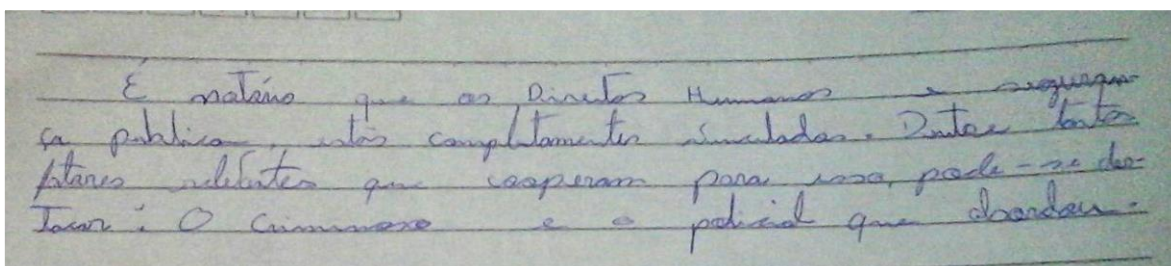 É notário que os Direitos Humanos e seguran-
ça publica, estão completamentes vinculadas. Dentre tantos
fatares referentes que cooperam para isso, pode-se des-
tacar: O Criminoso e o policial que abordou.